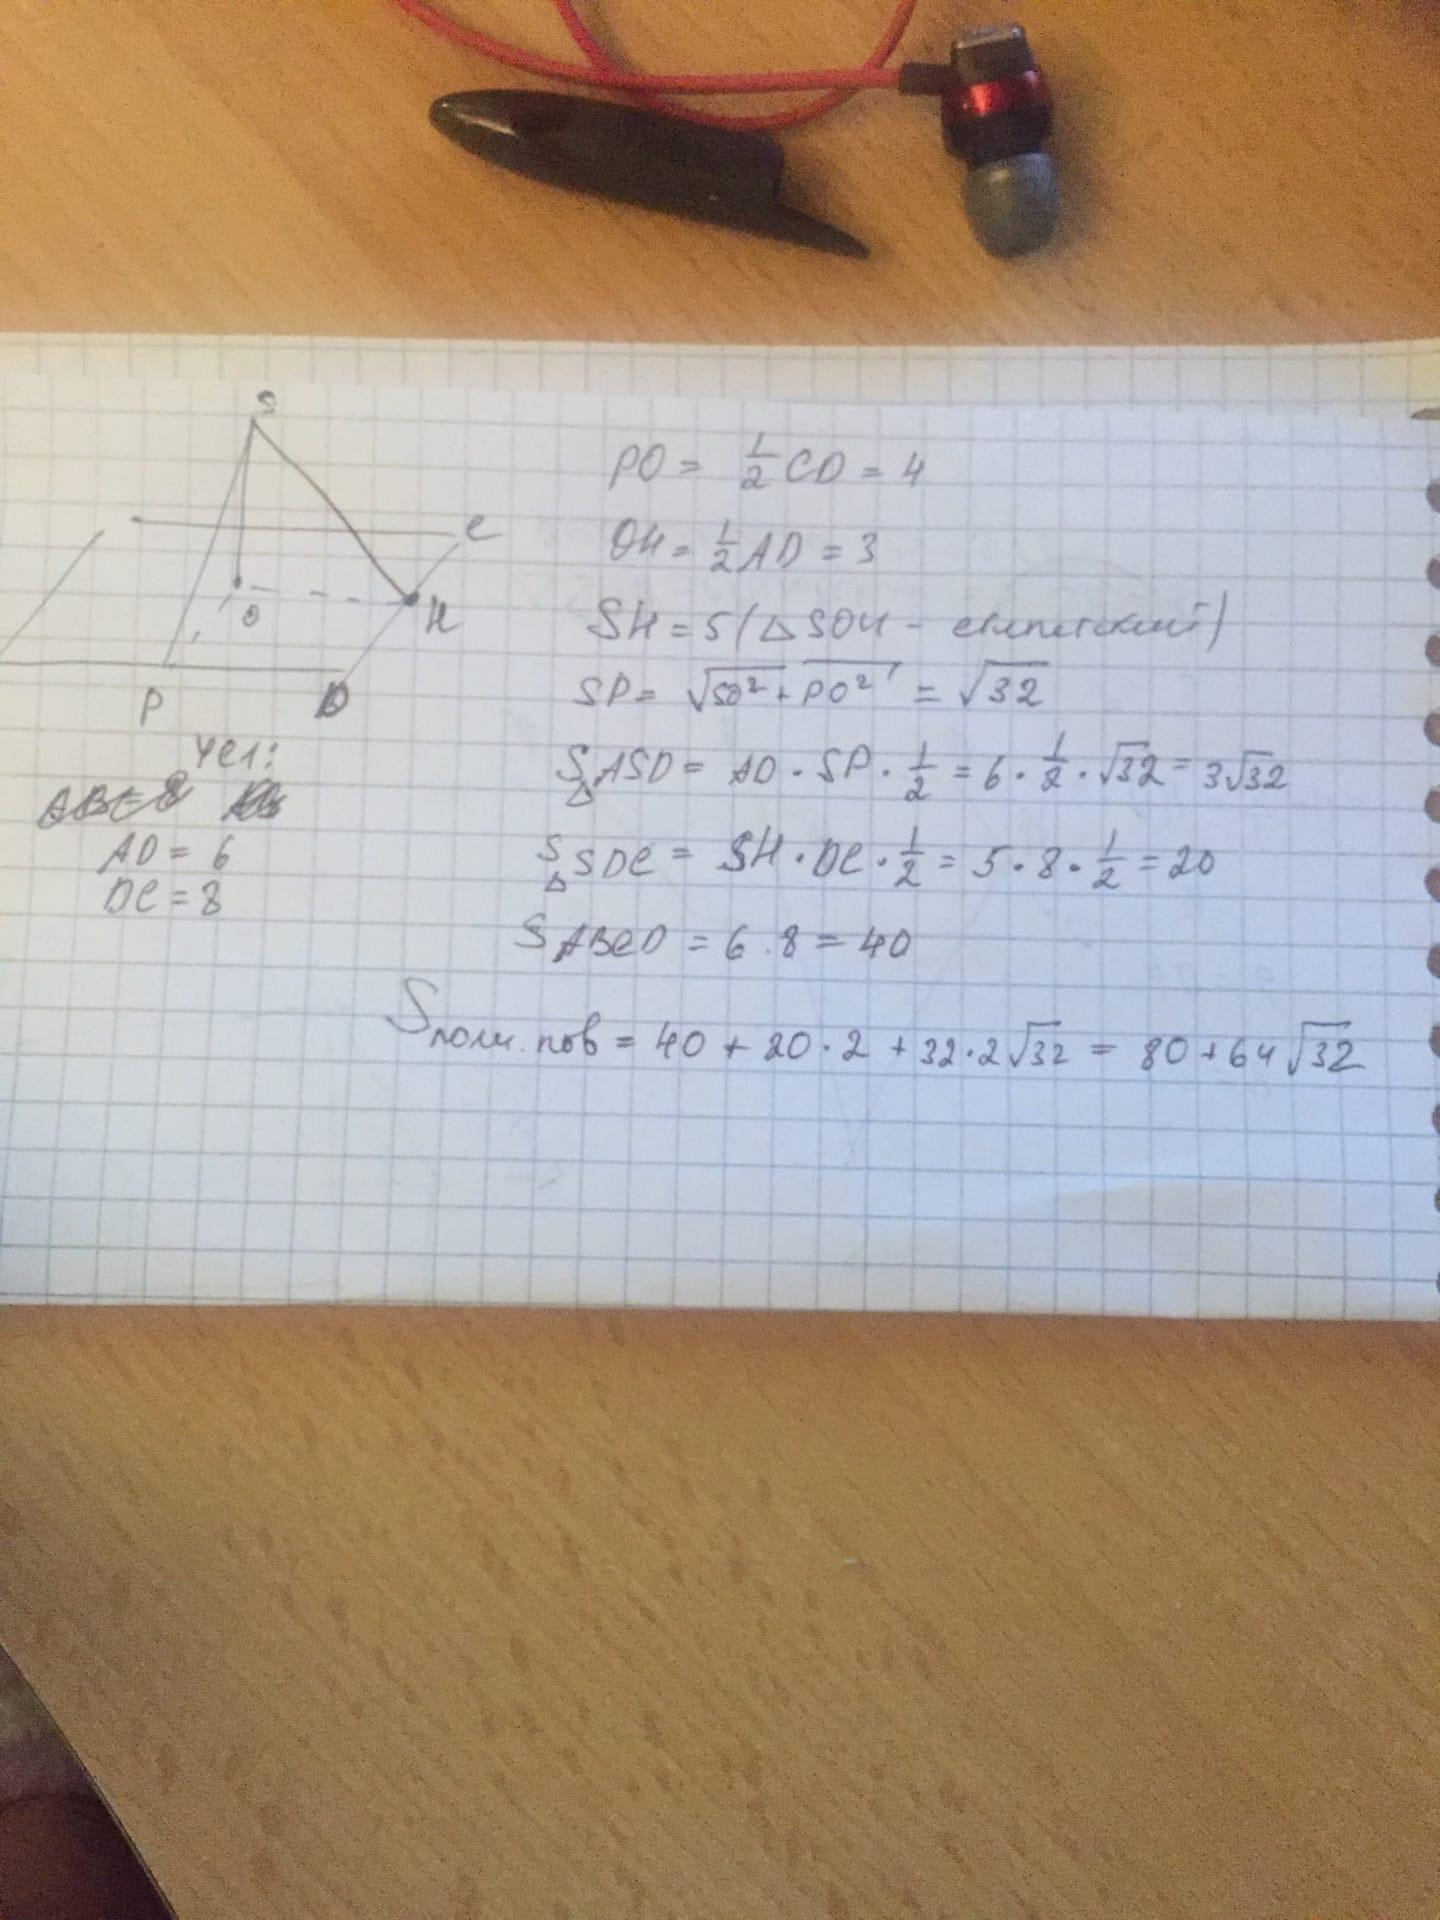 S
C
O
H
P
D
Усл:
AD = 6
DC = 8
PO = 1/2 CD = 4
OH = 1/2 AD = 3
SH = 5 (△ SOH - египетский)
SP = √SO² + PO² = √32
S△ASD = AD · SP · 1/2 = 6 · 1/2 · √32 = 3√32
S△SDC = SH · DC · 1/2 = 5 · 8 · 1/2 = 20
S ABCD = 6 . 8 = 40
Sполн. пов = 40 + 20 · 2 + 32 · 2√32 = 80 + 64√32